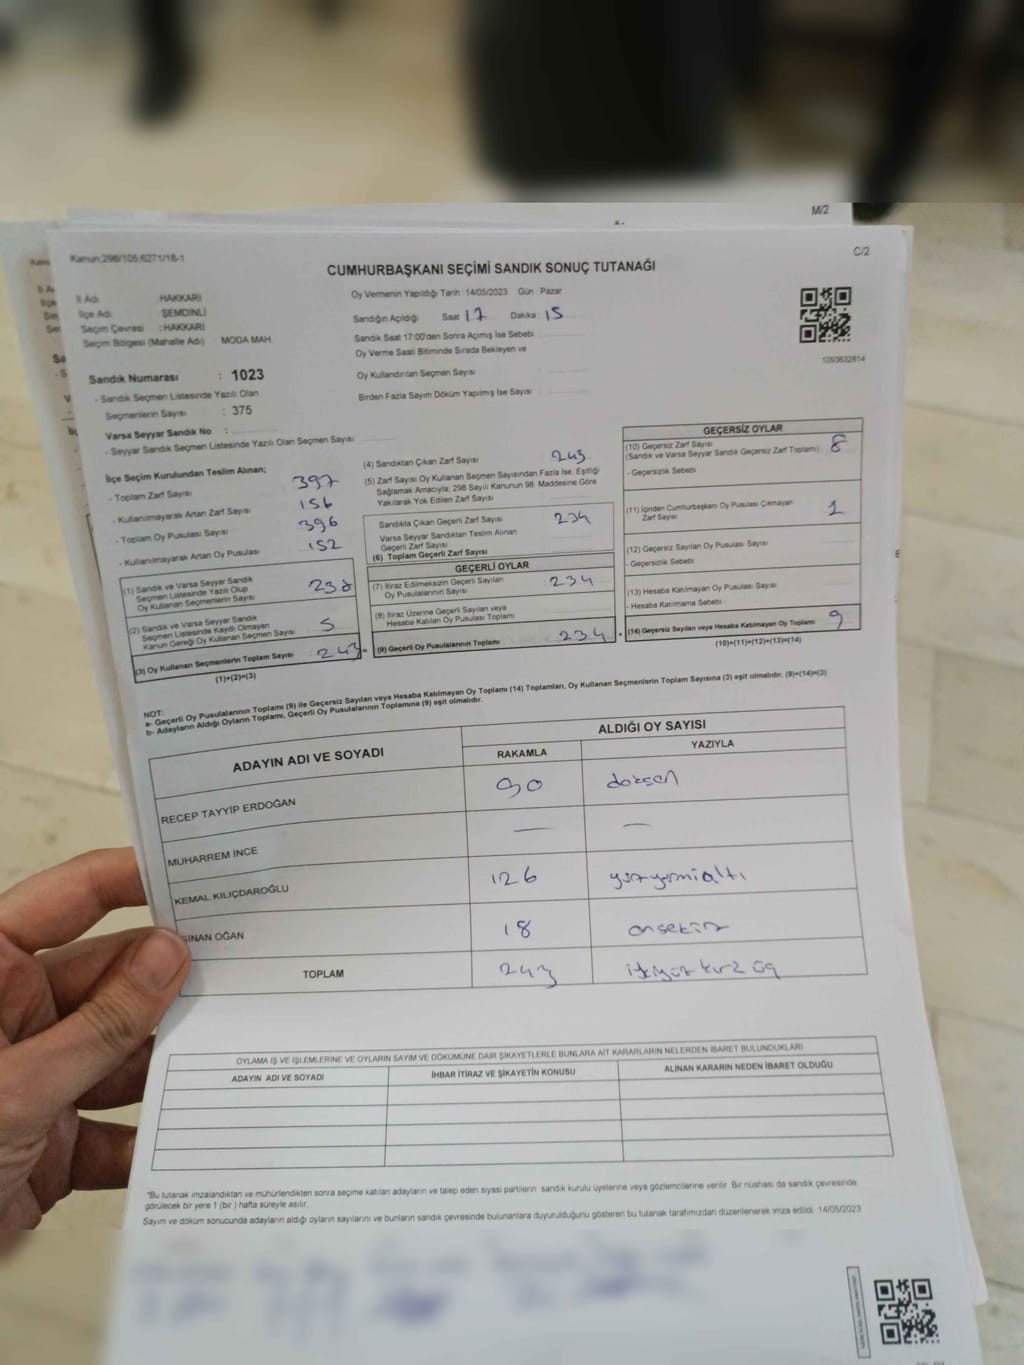 M/2
C/2
Kanun:298/105;6271/18-1
CUMHURBAŞKANI SEÇİMİ SANDIK SONUÇ TUTANAĞI
İl Adı HAKKARİ
İlçe Adı : ŞEMDİNLİ
Seçim Çevresi : HAKKARİ
Seçim Bölgesi (Mahalle Adı) : MODA MAH.
Sandık Numarası : 1023
- Sandık Seçmen Listesinde Yazılı Olan
Seçmenlerin Sayısı : 375
Varsa Seyyar Sandık No :
- Seyyar Sandık Seçmen Listesinde Yazılı Olan Seçmen Sayısı
Oy Vermenin Yapıldığı Tarih :14/05/2023 Gün : Pazar
Sandığın Açıldığı Saat 17 Dakika 15
Sandık Saat 17:00'den Sonra Açımış İse Sebebi
Oy Verme Saati Bitiminde Sırada Bekleyen ve
Oy Kullandırılan Seçmen Sayısı
Birden Fazla Sayım Döküm Yapılmış İse Sayısı
1093632814
İlçe Seçim Kurulundan Teslim Alınan;
- Toplam Zarf Sayısı 397
- Kullanılmayarak Artan Zarf Sayısı 156
- Toplam Oy Pusulası Sayısı 396
- Kullanılmayarak Artan Oy Pusulası 152
(1) Sandık ve Varsa Seyyar Sandık
Seçmen Listesinde Yazılı Olup
Oy Kullanan Seçmenlerin Sayısı 238
(2) Sandık ve Varsa Seyyar Sandık
Seçmen Listesinde Kayıtlı Olmayan
Kanun Gereği Oy Kullanan Seçmen Sayısı 5
(3) Oy Kullanan Seçmenlerin Toplam Sayısı 243
(1)+(2)=(3)
(4) Sandıktan Çıkan Zarf Sayısı 243
(5) Zarf Sayısı Oy Kullanan Seçmen Sayısından Fazla İse, Eşitliği
Sağlamak Amacıyla; 298 Sayılı Kanunun 98. Maddesine Göre
Yakılarak Yok Edilen Zarf Sayısı
Sandıkta Çıkan Geçerli Zarf Sayısı 234
Varsa Seyyar Sandıktan Teslim Alınan
Geçerli Zarf Sayısı
(6) Toplam Geçerli Zarf Sayısı
GEÇERLİ OYLAR
(7) İtiraz Edilmeksizin Geçerli Sayılan
Oy Pusulalarının Sayısı 234
(8) İtiraz Üzerine Geçerli Sayılan veya
Hesaba Katılan Oy Pusulası Toplamı
(9) Geçerli Oy Pusulalarının Toplamı 234
GEÇERSİZ OYLAR
(10) Geçersiz Zarf Sayısı
(Sandık ve Varsa Seyyar Sandık Geçersiz Zarf Toplamı) 8
- Geçersizlik Sebebi
(11) İçinden Cumhurbaşkanı Oy Pusulası Çıkmayan
Zarf Sayısı 1
(12) Geçersiz Sayılan Oy Pusulası Sayısı
- Geçersizlik Sebebi
(13) Hesaba Katılmayan Oy Pusulası Sayısı
- Hesaba Katılmama Sebebi
(14) Geçersiz Sayılan veya Hesaba Katılmayan Oy Toplamı 9
(10)+(11)+(12)+(13)=(14)
NOT:
a- Geçerli Oy Pusulalarının Toplamı (9) ile Geçersiz Sayılan veya Hesaba Katılmayan Oy Toplamı (14) Toplamları, Oy Kullanan Seçmenlerin Toplam Sayısına (3) eşit olmalıdır. (9)+(14)=(3)
b- Adayların Aldığı Oyların Toplamı, Geçerli Oy Pusulalarının Toplamına (9) eşit olmalıdır.
ADAYIN ADI VE SOYADI ALDIĞI OY SAYISI
RAKAMLA YAZIYLA
RECEP TAYYİP ERDOĞAN 90 doksan
MUHARREM İNCE — —
KEMAL KILIÇDAROĞLU 126 yüzyirmialtı
SİNAN OĞAN 18 onsekiz
TOPLAM 243 ikiyüz kırk üç
OYLAMA İŞ VE İŞLEMLERİNE VE OYLARIN SAYIM VE DÖKÜMÜNE DAİR ŞİKAYETLERLE BUNLARA AİT KARARLARIN NELERDEN İBARET BULUNDUKLARI
ADAYIN ADI VE SOYADI İHBAR İTİRAZ VE ŞİKAYETİN KONUSU ALINAN KARARIN NEDEN İBARET OLDUĞU
*Bu tutanak imzalandıktan ve mühürlendikten sonra seçime katılan adayların ve talep eden siyasi partilerin sandık kurulu üyelerine veya gözlemcilerine verilir. Bir nüshası da sandık çevresinde
görülecek bir yere 1 (bir ) hafta süreyle asılır.
Sayım ve döküm sonucunda adayların aldığı oyların sayılarını ve bunların sandık çevresinde bulunanlara duyurulduğunu gösteren bu tutanak tarafımızdan düzenlenerek imza edildi. 14/05/2023